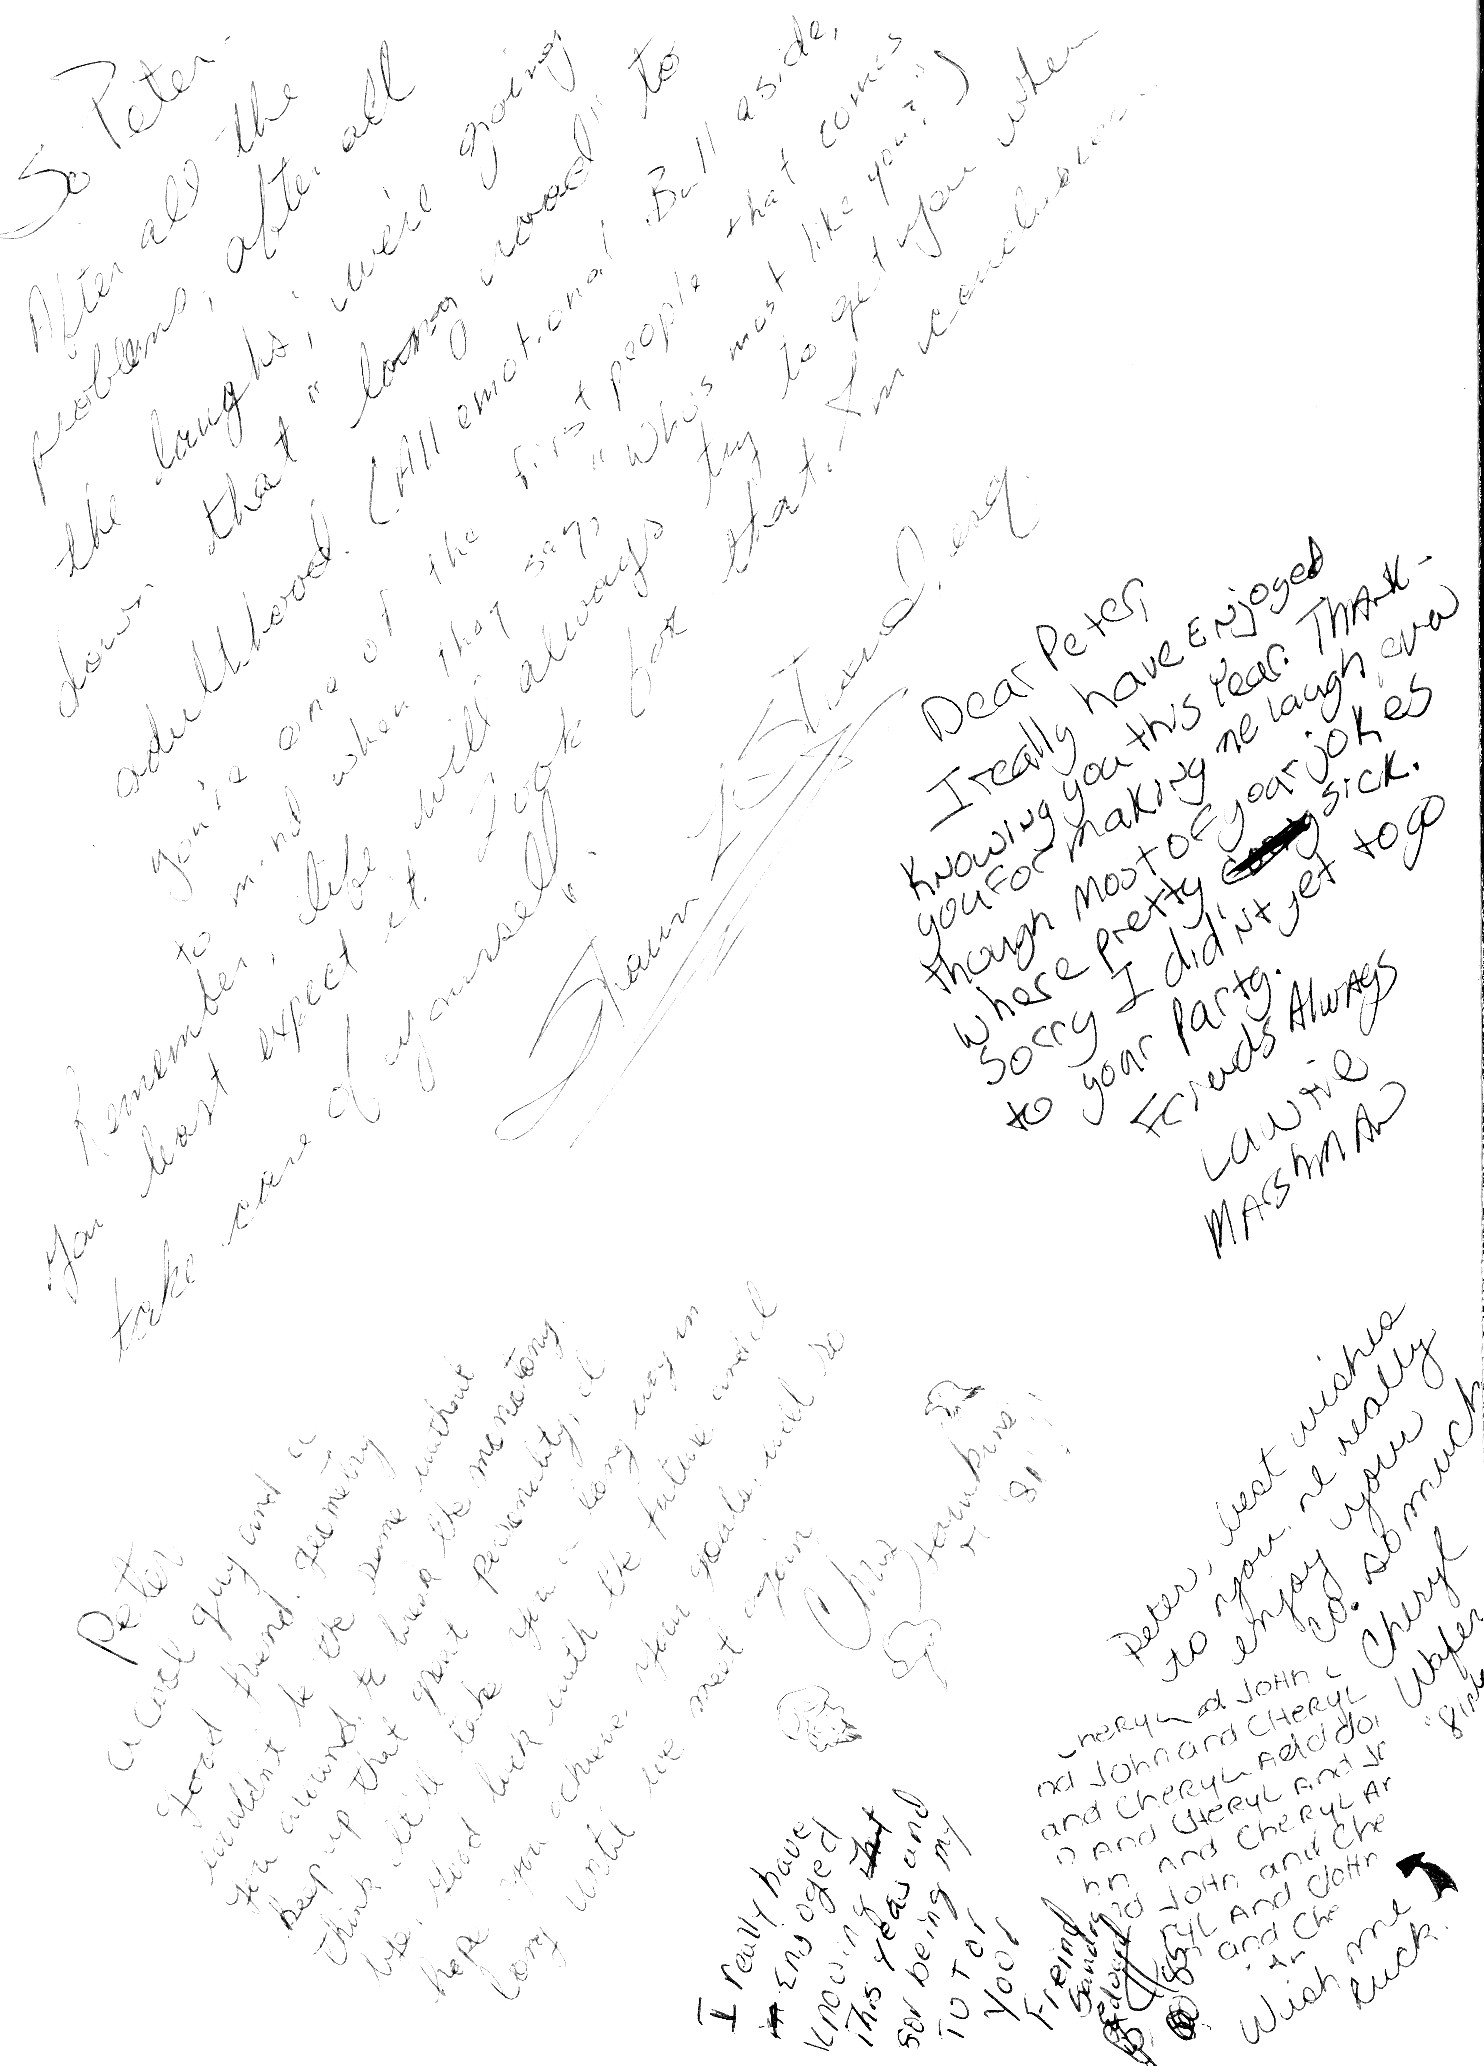 So Peter.
After all the
problems, after all
the laughs, we're going
down that "long road" to
adulthood. (All emotional Bull aside,
you're one of the first people that comes
to mind when they say, "Who's most like you?")
Remember, life will always try to get you when
you least expect it. Look for that. In conclusion..
take care of yourself.
Shawn
Dear Peter,
I really have Enjoyed
Knowing you this Year. THANK-
you For making me laugh, even
though most of your jokes
where pretty sick.
Sorry I didn't get to go
to your Party.
Friends Always
Laurie
MArshMAN
Peter
a cool guy and a
good friend. Geometry
wouldn't be the same without
you around, to break the monotony.
Keep up that great personality, I
think it'll take you a long way in
life. Good luck with the future and I
hope you achieve your goals, and so
long until we meet again
Chris
Hawkins
'81!!
Peter, best wishes
to you, ne really
enjoy your
co. so much
Cheryl
Wafer
CHERYL and JOHN
nd John and CHERYL
and CHERYL And Joh
n AND CHERYL AND Jo
hn and CHERYL An
d John and Che
RYL AND John
and Che
Wish me
luck.
I really have
Enjoyed
knowing
This year and
for being my
TUTOR
Your
Freind
Sandra